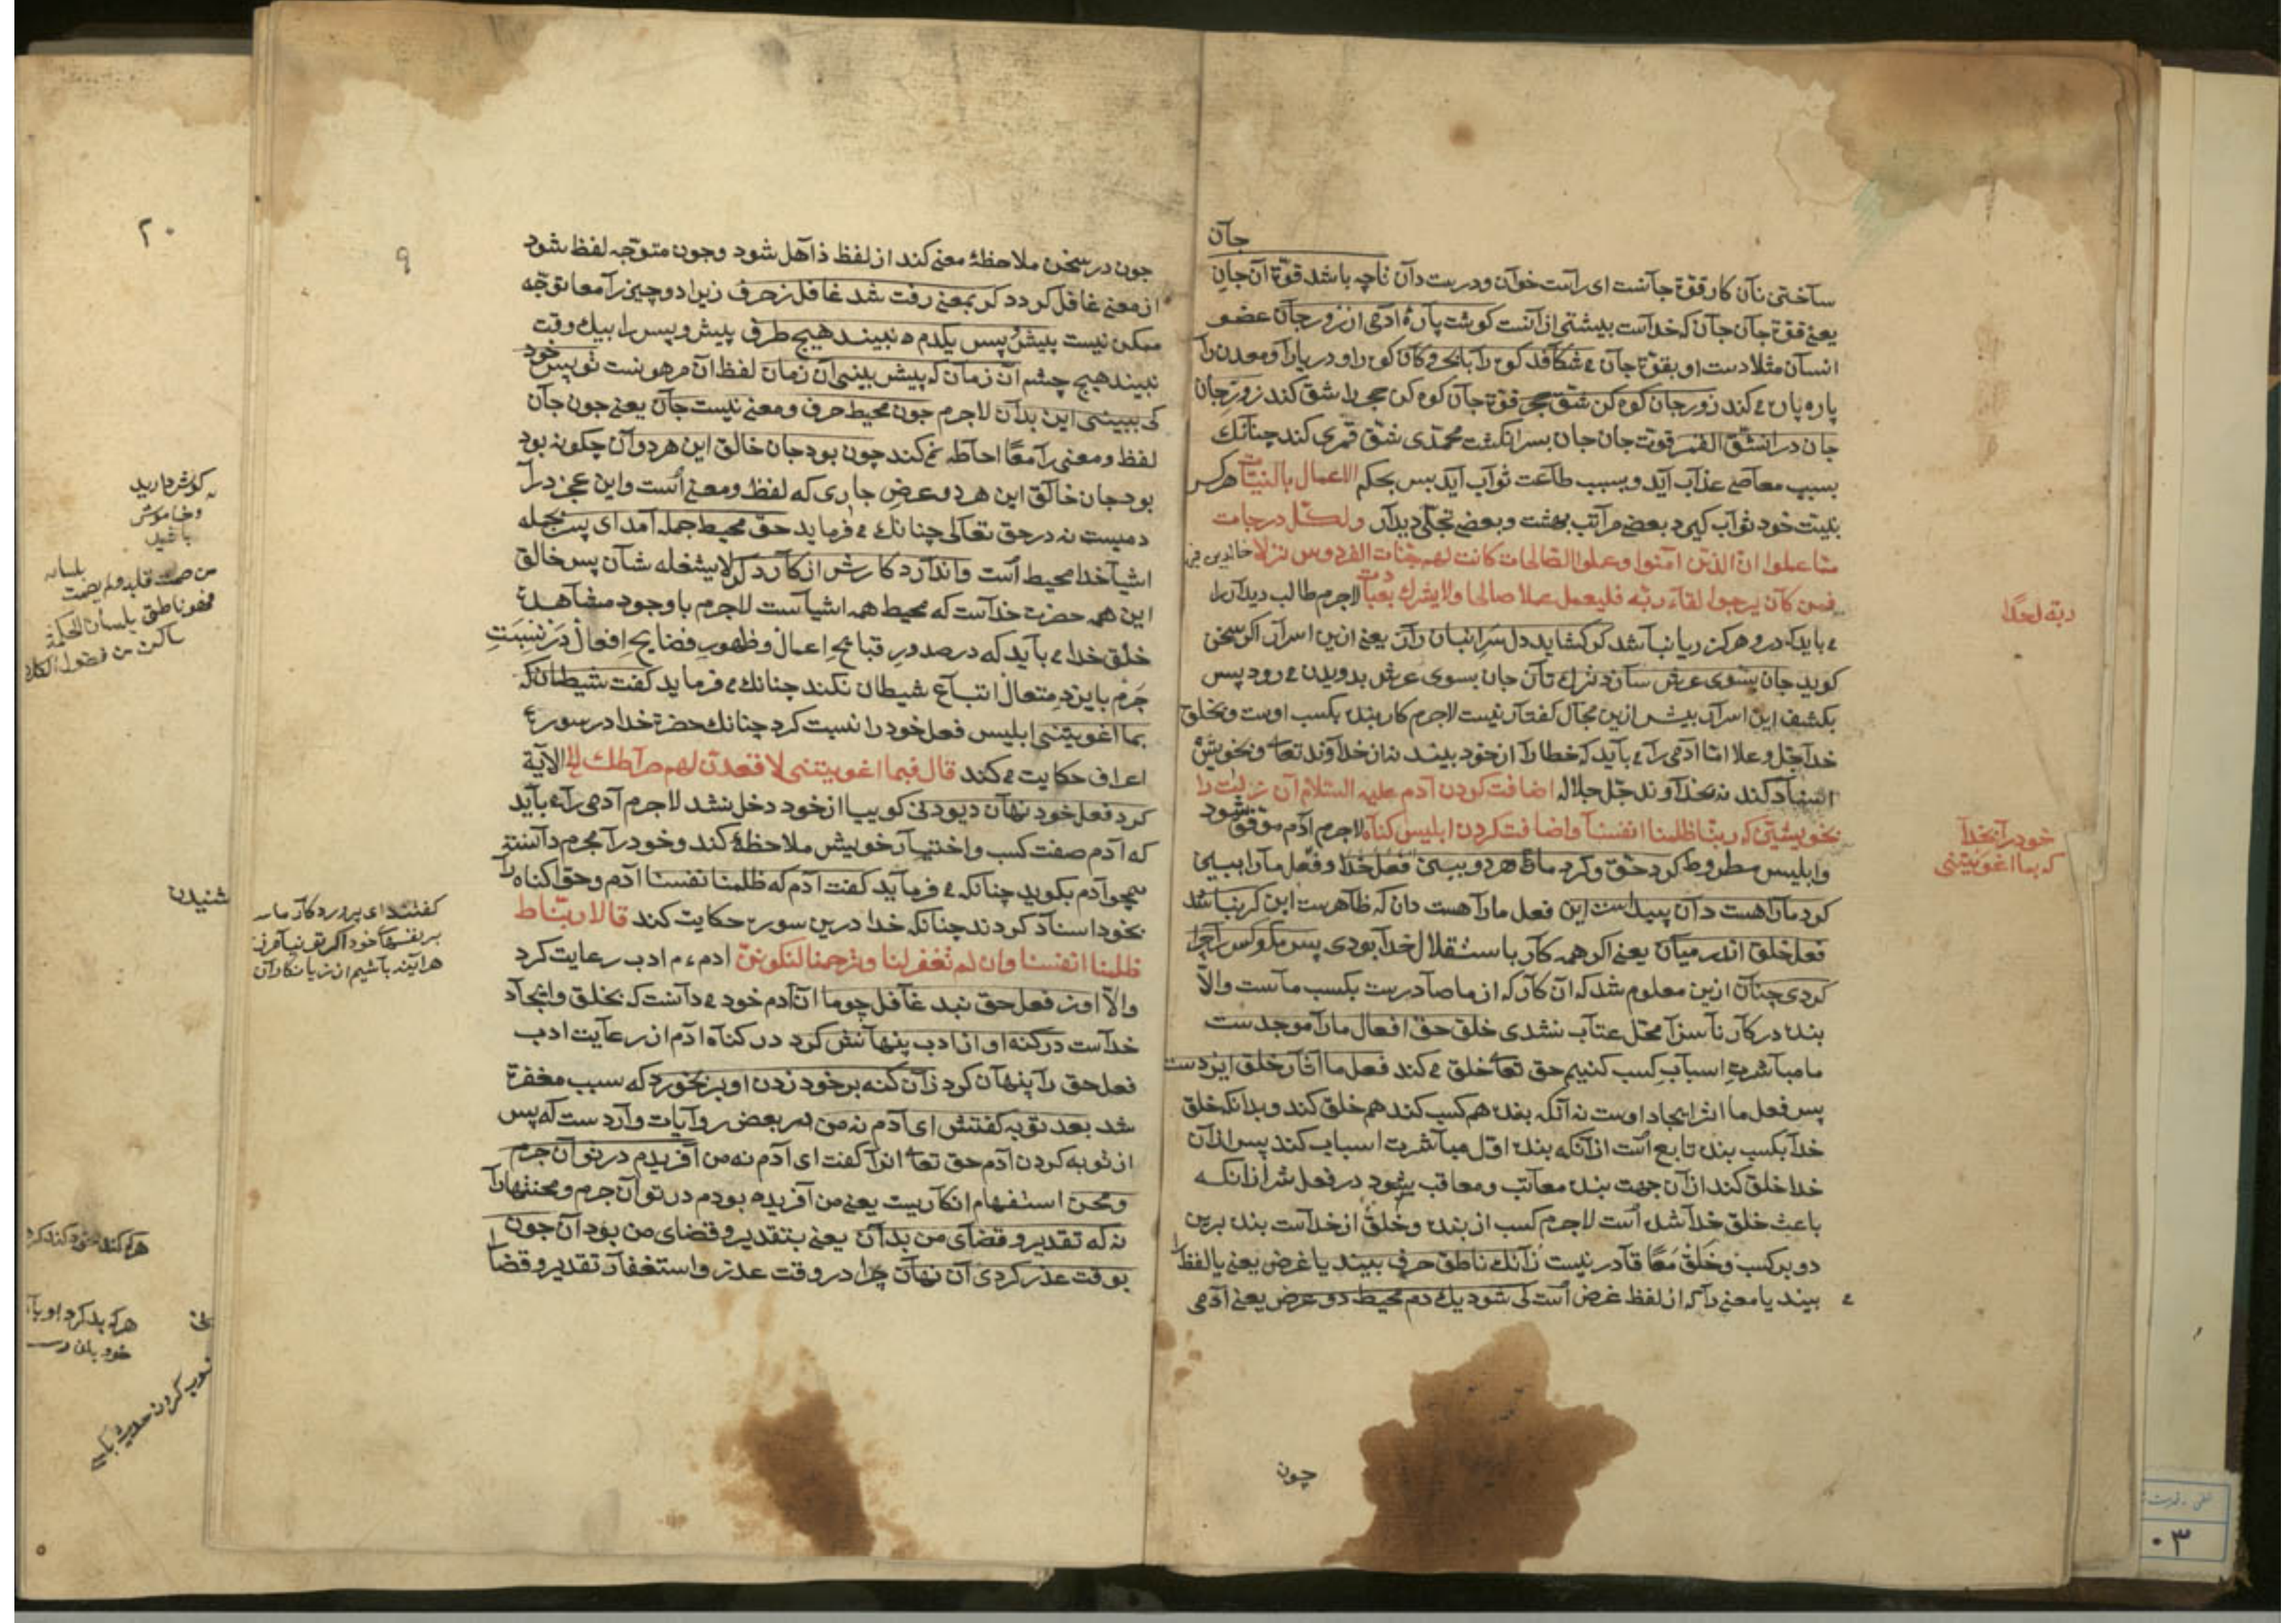 جان
ساختی نان کار قوّة جانست ای راست خوان و درست دان تاچه باشد قوّة آن جانِ
یعنی قوّة جان جان که خداست بیشتی از آنست کوشت پارهٔ آدمی از زور جان عضو
انسان مثلا دست او بقوّة جان می شکافد کوه را با بحر و کان کوه را و دریا را و معدن را
پاره پاره می کند زور جان کوه کن شقّ حجر قوّة جان کوه کن حجر را شق کند زور جان
جان در انشقّ القمر قوت جان جان بسر انکشت محمّدی شقّ قمری کند چنانک
بسبب معاصی عذاب آید و بسبب طاعت ثواب آید پس بحکم الاعمال بالنیّات هر کس
بنیت خود ثواب کیرد بعضی مراتب بهشت و بعضی تجلّی دیدار ولکلّ درجات
ممّا عملوا انّ الذین آمنوا وعملوا الصّالحات کانت لهم جنّات الفردوس نزلا خالدین فیها
فمن کان یرجوا لقاء ربّه فلیعمل عملا صالحا ولا یشرك بعبادت لاجرم طالب دیدار را
ربّه احدًا
می باید که درو هرکز ریا نباشد کر کشاید دل سر انبان راز یعنی ازین اسرار اکر سخن
کوید جان بسوی عرش سازد ترك تاز جان بسوی عرش بدویدن می رود پس
بکشف این اسرار بیشتر ازین مجال کفتار نیست لاجرم کار بنده بکسب اوست و بخلق
خدا جلّ وعلا امّا آدمی را می باید که خطا را از خود بیند نه از خداوند تعالی و بخویش
اسناد کند نه بخداوند جلّ جلاله اضافت کردن آدم علیه السّلام آن زلّت را
بخویشتن که ربّنا ظلمنا انفسنا و اضافت کردن ابلیس کناه لاجرم آدم موفّق شود
خود را بخدا
که بما اغویتنی
و ابلیس مطرود کرد حقّ و کرد ما هر دو ببین فعل خدا و فعل ما را ببین
کرد ما را هست دان پیداست این فعل ما را هست دان که ظاهرست این کر نباشد
فعل خلق اندر میان یعنی اکر همه کار باستقلال خدا بودی پس مکو کس را چرا
کردی چنان ازین معلوم شد که آن کار که از ما صادرست بکسب ماست والّا
بنده در کار ناسزا محلّ عتاب نشدی خلق حق افعال ما را موجدست
ما مباشرتِ اسباب کسب کنیم حق تعالی خلق می کند فعل ما آثار خلق ایزدست
پس فعل ما اثر ایجاد اوست نه آنکه بنده هم کسب کند هم خلق کند و بدانکه خلق
خدا بکسب بنده تابع است از آنکه بنده اوّل مباشرت اسباب کند پس از آن
خدا خلق کند از آن جهت بنده معاتب و معاقب بشود در فعل شر از انکه
باعث خلق خدا شده است لاجرم کسب از بنده و خلق از خداست بنده برین
دو برکسب و خلق معًا قادر نیست زانك ناطق حرف بیند یا غرض یعنی یا لفظ را
بیند یا معنی را که از لفظ غرض است کی شود یك دم محیط دو عرض یعنی آدمی
چون
۹
چون در سخن ملاحظهٔ معنی کند از لفظ ذاهل شود و چون متوجّه لفظ شود
از معنی غافل کردد کر بمعنی رفت شد غافل ز حرف زیرا دو چیز را معا توجّه
ممکن نیست پیش و پس یکدم نبیند هیچ طرف پیش و پس را بیك وقت
نبیند هیچ چشم آن زمان که پیش بینی آن زمان لفظ آن مرهونست تو پس خود
کی ببینی این بدان لاجرم چون محیط حرف و معنی نیست جان یعنی چون جان
لفظ و معنی را معًا احاطه نمی کند چون بود جان خالق این هر دوان چکونه بود
بود جان خالق این هر دو عرض جاری که لفظ و معنی است و این عجز در آ
دمیست نه در حق تعالی چنانك می فرماید حق محیط جمله آمد ای پسر بجمله
اشیا خدا محیط است وا ندارد کارش از کار دکر لا یشغله شان پس خالق
این همه حضرت خداست که محیط همه اشیاست لاجرم با وجود مشاهدهٔ
خلق خدا می باید که در صدورِ قبایحِ اعمال و ظهورِ فضایحِ افعال در نسبتِ
جرم با ایزد متعال اتّباع شیطان نکند چنانك می فرماید کفت شیطان که
بما اغویتنی ابلیس فعل خود را نسبت کرد چنانك حضرة خدا در سورهٔ
اعراف حکایت می کند قال فبما اغویتنی لاقعدنّ لهم صراطك الآیة
کرد فعل خود نهان دیو دنی کوییا از خود دخل نشد لاجرم آدمی را می باید
که آدم صفت کسب و اختیار خویش ملاحظه کند و خود را مجرم دانسته
همچو آدم بکوید چنانکه می فرماید کفت آدم که ظلمنا نفسنا آدم و حوّا کناه را
بخود اسناد کردند چنانکه خدا درین سوره حکایت کند قالا ربّنا
ظلمنا انفسنا وان لم تغفر لنا وترحمنا لنکوننّ آدم م ادب رعایت کرد
والّا او ز فعل حق نبد غافل چو ما آن آدم خود می دانست که بخلق و ایجاد
خداست در کنه او از ادب پنهانش کرد در کناه آدم از رعایت ادب
فعل حق را پنهان کرد زان کنه بر خود زدن او بر بخورد که سبب مغفرة
شد بعد توبه کفتش ای آدم نه من در بعض روایات واردست که پس
از توبه کردن آدم حق تعالی او را کفت ای آدم نه من آفریدم در تو آن جرم
و محن استفهام انکاریست یعنی من آفریده بودم در تو آن جرم و محنتها را
نه که تقدیر و قضای من بد آن یعنی بتقدیر و قضای من بود آن چون
بوقت عذر کردی آن نهان چرا در وقت عذر و استغفار تقدیر و قضا را
کفتند ای پروردکار ما
بر نفسها خود اکر تو نیامرزی
هر آینه باشیم از زیانکاران
۲۰
کوش دارید
و خاموش
باشید
من صمت قلبه ولم یصمت لسانه
فهو ناطق بلسان الحکمة
ساکن من فضول الکلام
شنیدن
هر که بد کرد او با
۰۳